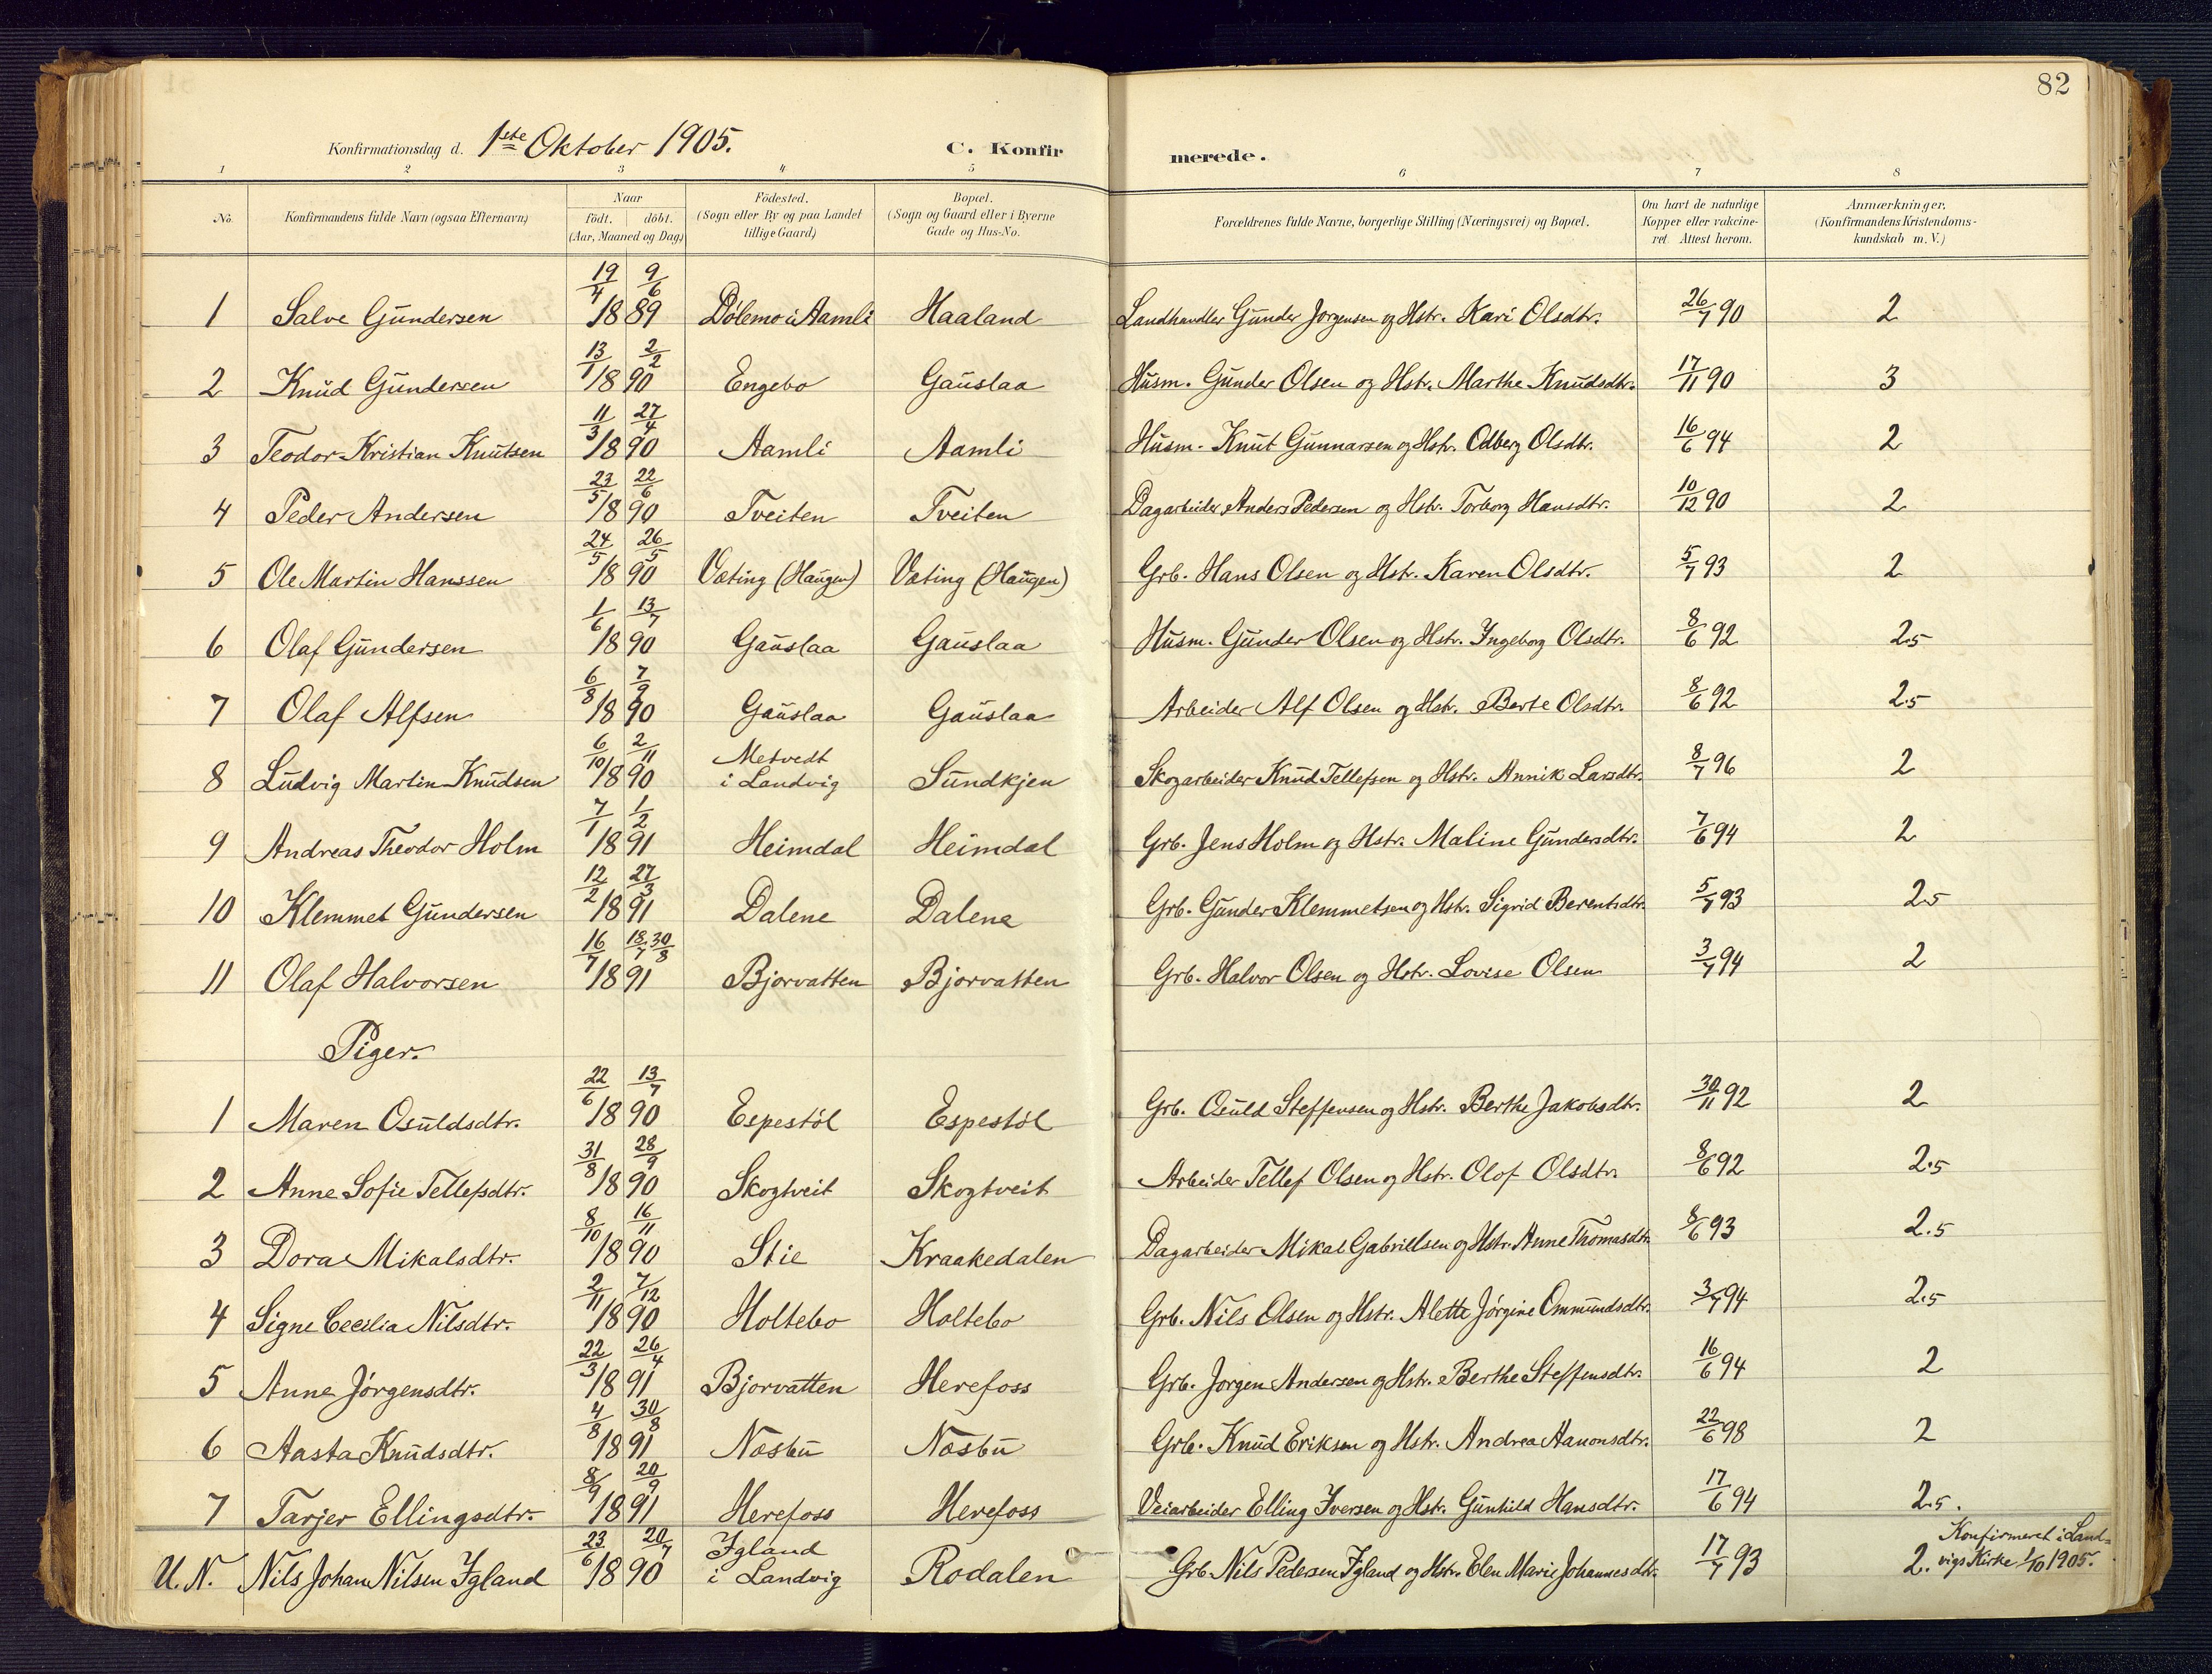 82
Konfirmationsdag d. 1ste Oktober 1905. C. Konfir merede.
1 2 3 4 5 6 7 8
No. Konfirmandens fulde Navn (ogsaa Efternavn) Naar født. døbt. (Aar, Maaned og Dag) Fødested. (Sogn eller By og paa Landet tillige Gaard) Bopæl. (Sogn og Gaard eller i Byerne Gade og Hus-No. Forældrenes fulde Navne, borgerlige Stilling (Næringsvei) og Bopæl. Om havt de naturlige Kopper eller vakcineret Attest herom. Anmærkninger. (Konfirmandens Kristendomskundskab m. V.)
1 Salve Gundersen 19/4 9/6 1889 Dölemo i Aamli Haaland Landhandler Gunder Jorgensen og Hstr. Kari Olsdtr. 26/7 90 2
2 Knud Gundersen 13/1 2/2 1890 Engebo Gauslaa Husm. Gunder Olsen og Hstr. Marthe Knudsdtr. 17/11 90 3
3 Teodor Kristian Knutsen 11/3 27/4 1890 Aamli Aamli Husm. Knut Gunnarsen og Hstr. Odberg Olsdtr. 16/6 94 2
4 Peder Andersen 23/5 22/6 1890 Tveiten Tveiten Dagarbeider Anders Pedersen og Hstr. Torborg Hansdtr. 10/12 90 2
5 Ole Martin Hanssen 24/5 26/5 1890 Væting (Haugen) Væting (Haugen) Grb. Hans Olsen og Hstr. Karen Olsdtr. 5/7 93 2
6 Olaf Gundersen 1/6 13/7 1890 Gauslaa Gauslaa Husm. Gunder Olsen og Hstr. Ingeborg Olsdtr. 8/6 92 2.5
7 Olaf Alfsen 6/8 7/9 1890 Gauslaa Gauslaa Arbeider Alf Olsen og Hstr. Berte Olsdtr. 8/6 92 2.5
8 Ludvig Martin Knudsen 6/10 2/11 1890 Metvedt i Landvig Sundkjen Skogarbeider Knud Tellefsen og Hstr. Annik Larsdtr. 8/7 96 2
9 Andreas Theodor Holm 7/1 1/2 1891 Heimdal Heimdal Grb. Jens Holm og Hstr. Maline Gundersdtr. 7/6 94 2
10 Klemmet Gundersen 12/2 27/3 1891 Dalene Dalene Grb. Gunder Klemmetsen og Hstr. Sigrid Berentsdtr. 5/7 93 2.5
11 Olaf Halvorsen 16/7 18/7 30/8 1891 Bjorvatten Bjorvatten Grb. Halvor Olsen og Hstr. Lovise Olsen 3/7 94 2
Piger.
1 Maren Osuldsdtr. 22/6 13/7 1890 Espestöl Espestöl Grb. Osuld Steffensen og Hstr. Berthe Jakobsdtr. 30/11 92 2
2 Anne Sofie Tellefsdtr. 31/8 28/9 1890 Skogtveit Skogtveit Arbeider Tellef Olsen og Hstr. Olof Olsdtr. 8/6 92 2.5
3 Dora Mikalsdtr. 8/10 16/11 1890 Stie Kraakedalen Dagarbeider Mikal Gabrielsen og Hstr. Anne Thomasdtr. 8/6 93 2.5
4 Signe Cecilia Nilsdtr. 2/11 7/12 1890 Holtebo Holtebo Grb. Nils Olsen og Hstr. Alette Jörgine Ommundsdtr. 3/7 94 2.5
5 Anne Jörgensdtr. 22/3 26/4 1891 Bjorvatten Herefoss Grb. Jorgen Andersen og Hstr. Berthe Steffensdtr. 16/6 94 2
6 Aasta Knudsdtr. 4/8 30/8 1891 Næsbu Næsbu Grb. Knud Eriksen og Hstr. Andrea Aanonsdtr. 22/6 98 2
7 Tarjer Ellingsdtr. 8/9 20/9 1891 Herefoss Herefoss Veiarbeider Elling Iversen og Hstr. Gunhild Hansdtr. 17/6 94 2.5.
U. N. Nils Johan Nilsen Igland 23/6 20/7 1890 Igland i Landvig Rodalen Grb Nils Pedersen Igland og Hstr. Elen Marie Johannesdtr. 17/7 93 2. Konfirmeret i Landvigs Kirke 1/10 1905.